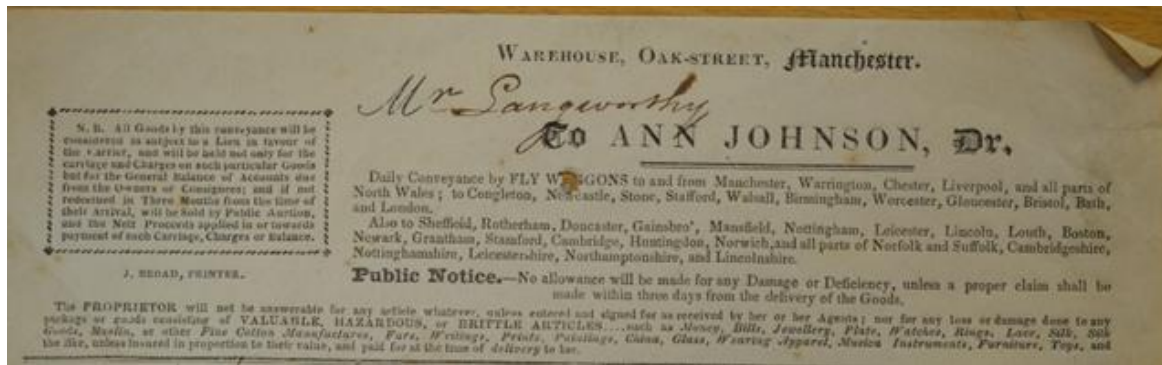 WAREHOUSE, OAK-STREET, Manchester.
Mr Langworthy
To ANN JOHNSON, Dr.
N. B. All Goods by this conveyance will be
considered as subject to a Lien in favour of
the Carrier, and will be held not only for the
carriage and Charges on such particular Goods
but for the General Balance of Accounts due
from the Owners or Consignees; and if not
redeemed in Three Months from the time of
their Arrival, will be Sold by Public Auction,
and the Nett Proceeds applied in or towards
payment of such Carriage, Charges or Balance.
J. BROAD, PRINTER.
Daily Conveyance by FLY WAGGONS to and from Manchester, Warrington, Chester, Liverpool, and all parts of
North Wales; to Congleton, Newcastle, Stone, Stafford, Walsall, Birmingham, Worcester, Gloucester, Bristol, Bath,
and London.
Also to Sheffield, Rotherham, Doncaster, Gainsbro', Mansfield, Nottingham, Leicester, Lincoln, Louth, Boston,
Newark, Grantham, Stamford, Cambridge, Huntingdon, Norwich, and all parts of Norfolk and Suffolk, Cambridgeshire,
Nottinghamshire, Leicestershire, Northamptonshire, and Lincolnshire.
Public Notice.—No allowance will be made for any Damage or Deficiency, unless a proper claim shall be
made within three days from the delivery of the Goods.
The PROPRIETOR will not be answerable for any article whatever, unless entered and signed for as received by her or her Agents; nor for any loss or damage done to any
package or goods consisting of VALUABLE, HAZARDOUS, or BRITTLE ARTICLES....such as Money, Bills, Jewellery, Plate, Watches, Rings, Lace, Silk, Silk
Goods, Muslin, or other Fine Cotton Manufactures, Furs, Writings, Prints, Paintings, China, Glass, Wearing Apparel, Musica Instruments, Furniture, Toys, and
the like, unless insured in proportion to their value, and paid for at the time of delivery to her.